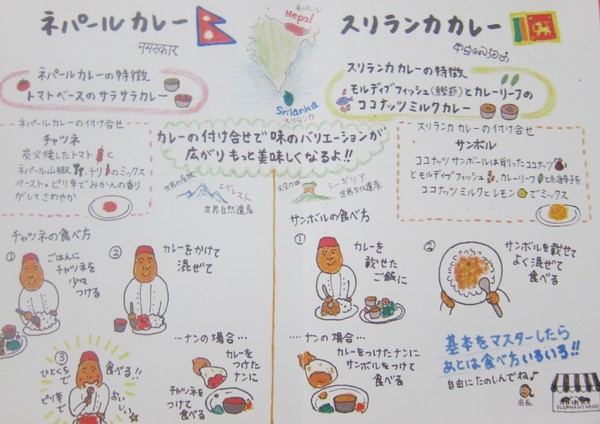 ネパールカレー
नमस्कार
ネパール
Nepal
Srilanka
スリランカ
スリランカカレー
ネパールカレーの特徴
トマトベースのサラサラカレー
スリランカカレーの特徴
モルディブフィッシュ(鰹節)とカレーリーフの
ココナッツミルクカレー
ネパールカレーの付け合せ
チャツネ
炭火焼したトマトと
ネパール山椒、チリのミックス
ペースト。ピリ辛でみかんの香り
がしてさわやか
カレーの付け合せで味のバリエーションが
広がりもっと美味しくなるよ!!
スリランカカレーの付け合せ
サンボル
ココナッツサンボルは削りったココナッツ
とモルディブフィッシュ、カレーリーフと赤唐辛子を
ココナッツミルクとレモンでミックス
世界の屋根
エベレスト
世界自然遺産
シーギリア
世界文化遺産
チャツネの食べ方
①
ごはんに
チャツネを
少々
つける
②
カレーをかけて
混ぜて
③
ひとくちで
食べる!!
ピリ辛で
おいしい
…ナンの場合…
カレーを
つけた
ナンに
チャツネを
つけて
食べる
サンボルの食べ方
①
カレーを
載せた
ご飯に
②
サンボルを載せて
よく混ぜて
食べる
…ナンの場合…
カレーをつけたナンに
サンボルをつけて
食べる
基本をマスターしたら
あとは食べ方いろいろ!!
自由にたのしんでね♪
店長
ELEPHANT HOUSE